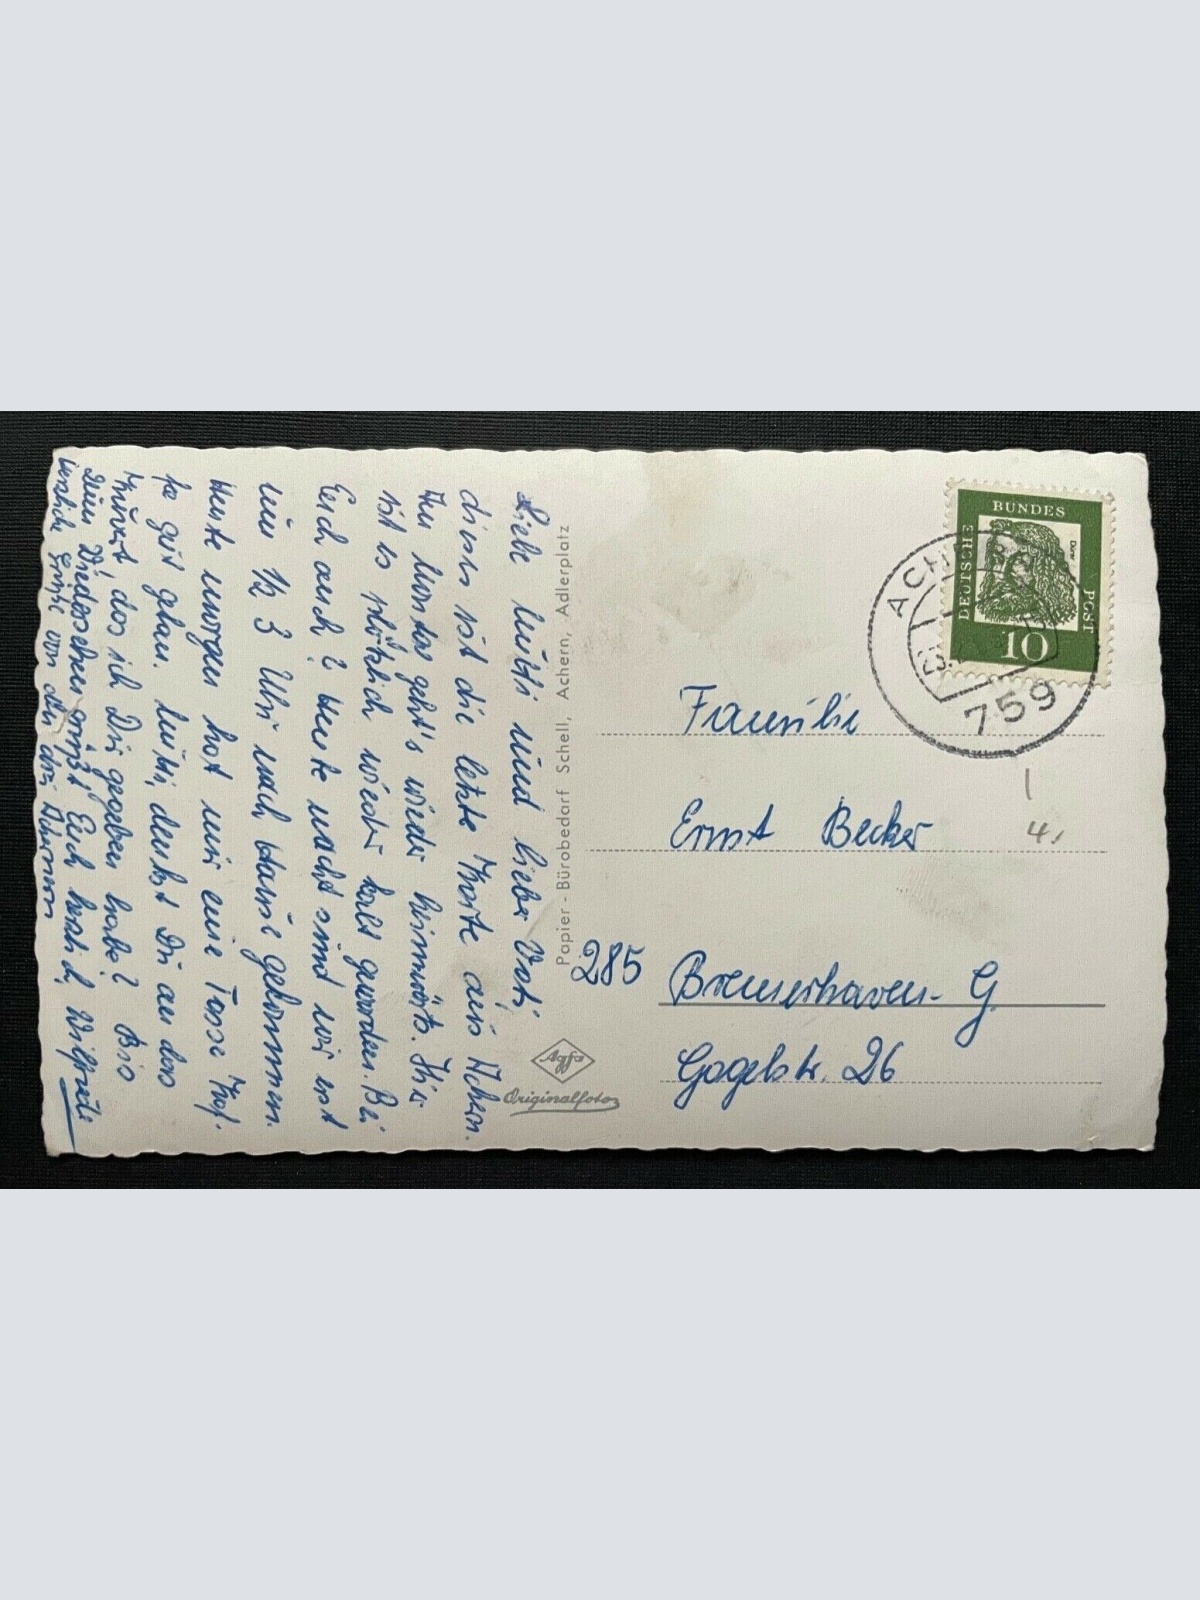 Liebe Mutti und lieber Vati,
dieses ist die letzte Karte aus Achern.
Am Montag geht's wieder heimwärts. Hier
ist es plötzlich wieder kalt geworden. Bei
Euch auch? Heute nacht sind wir erst
um 1/2 3 Uhr nach Hause gekommen.
Heute morgen hat mir eine Tasse Kaf-
fe gut getan. Mutti, denkst Du an das
, das ich Dir gegeben habe? Bis
zum Wiedersehen grüßt Euch herzlich, Wilfried
herzliche Grüße von den drei
Papier - Bürobedarf Schell, Achern, Adlerplatz
Agfa
Originalfoto
DEUTSCHE BUNDES POST
Dürer
10
ACH
23.
759
Familie
Ernst Becker
285 Bremerhaven- G.
Gogelstr. 26
1
4,